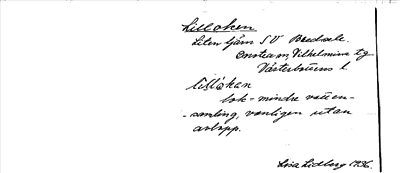 Lilloken
Liten tjärn SV Bredsele.
Onsteam, Vilhelmina tg
Västerbottens l.
lillökan
lok = mindre vatten-
-samling, vanligen utan
avlopp.
Lisa Lidberg 1936.